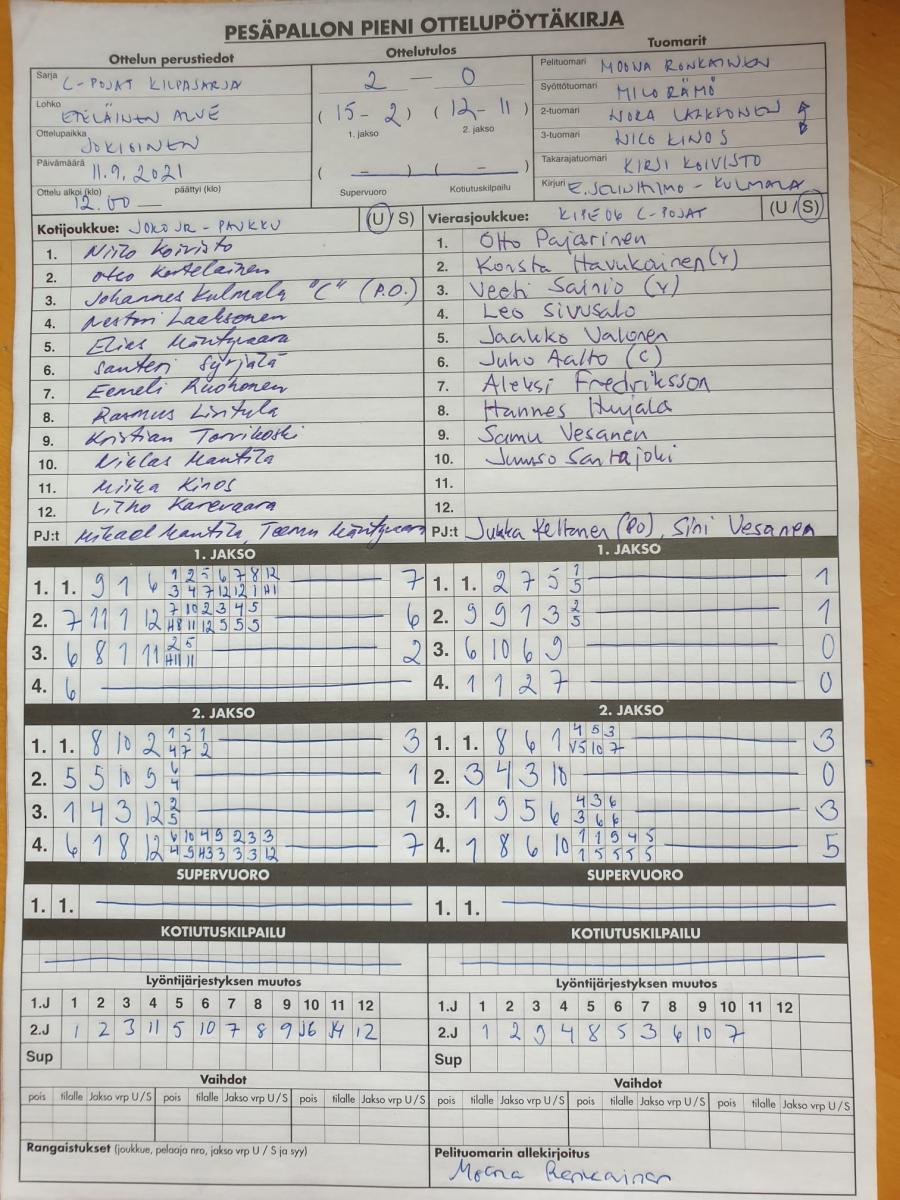 PESÄPALLON PIENI OTTELUPÖYTÄKIRJA
Ottelun perustiedot
Ottelutulos
Tuomarit
Sarja C-POJAT KILPASARJA
Lohko ETELÄINEN ALUE
Ottelupaikka JOKIOINEN
Päivämäärä 11.9.2021
Ottelu alkoi (klo) 12.00 päättyi (klo) —
2 — 0
(15-2) (12-11)
1. jakso 2. jakso
( – ) ( – )
Supervuoro Kotiutuskilpailu
Pelituomari MOONA RONKAINEN
Syöttötuomari MILO RÄMÖ
2-tuomari NORA LAAKSONEN
3-tuomari NICO KINOS
Takarajatuomari KIRSI KOIVISTO
Kirjuri KULMALA
Kotijoukkue: JOKO JR - PANKKU (U / S)
1. Niilo Koivisto
2. Otto Kortelainen
3. Johannes Kulmala "C" (P.O.)
4. Nestori Laaksonen
5. Elias Mäntyvaara
6. Santeri Syrjälä
7. Eemeli Ruohonen
8. Rasmus
9. Kristian Torvikoski
10. Niklas Mantila
11. Miika Kinos
12. Karevaara
PJ:t Mikael Mantila, Teemu Mäntyvaara
Vierasjoukkue: KIPE 06 C-POJAT (U / S)
1. Otto Pajarinen
2. Konsta Havukainen (Y)
3. Veeti Sainio (Y)
4. Leo Sivusalo
5. Jaakko Valonen
6. Juho Aalto (C)
7. Aleksi Fredriksson
8. Hannes Hujala
9. Samu Vesanen
10. Juuso Santajoki
11.
12.
PJ:t Jukka Keltanen (PO), Sini Vesanen
1. JAKSO
1. 1. 9 1 6 1 2 5 6 7 8 12 7
3 4 7 12 12 1 H1
2. 7 11 1 12 7 10 2 3 4 5 6
H8 11 12 5 5 5
3. 6 8 1 11 2 5 2
H11 11
4. 6
1. JAKSO
1. 1. 2 7 5 1 1
5
2. 9 9 1 3 2 1
5
3. 6 10 6 9 0
4. 1 1 2 7 0
2. JAKSO
1. 1. 8 10 2 1 5 1 3
4 7 2
2. 5 5 10 9 6 1
4
3. 1 4 3 12 2 1
5
4. 6 1 8 12 6 10 4 9 2 3 3 7
4 9 H3 3 3 3 12
2. JAKSO
1. 1. 8 6 1 4 5 3 3
V5 10 7
2. 3 4 3 10 0
3. 1 9 5 6 4 3 6 3
3 6 6
4. 1 8 6 10 1 1 9 4 5 5
1 5 5 5 5
SUPERVUORO
1. 1.
SUPERVUORO
1. 1.
KOTIUTUSKILPAILU
KOTIUTUSKILPAILU
Lyöntijärjestyksen muutos
1.J 1 2 3 4 5 6 7 8 9 10 11 12
2.J 1 2 3 11 5 10 7 8 9 J6 J4 12
Sup
Lyöntijärjestyksen muutos
1.J 1 2 3 4 5 6 7 8 9 10 11 12
2.J 1 2 9 4 8 5 3 6 10 7
Sup
Vaihdot
pois tilalle Jakso vrp U/S pois tilalle Jakso vrp U/S pois tilalle Jakso vrp U/S
Vaihdot
pois tilalle Jakso vrp U/S pois tilalle Jakso vrp U/S pois tilalle Jakso vrp U/S
Rangaistukset (joukkue, pelaaja nro, jakso vrp U / S ja syy)
Pelituomarin allekirjoitus
Moona Ronkainen